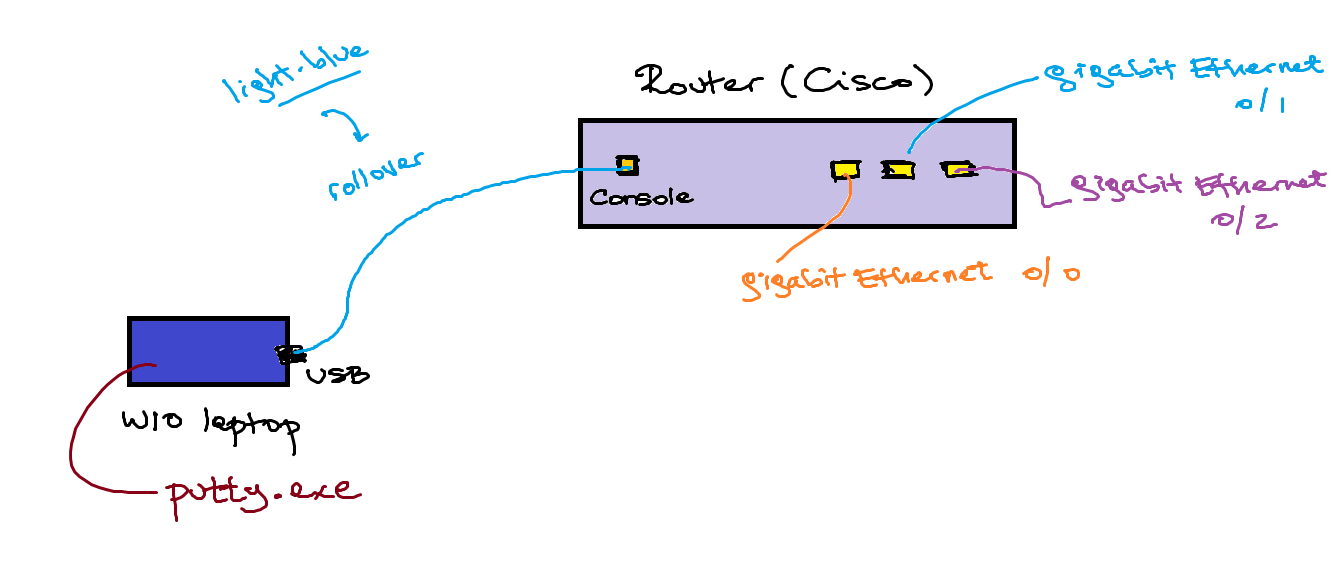 light-blue
rollover
Router (Cisco)
gigabit Ethernet
0/1
Console
gigabit Ethernet
0/2
gigabit Ethernet 0/0
USB
W10 laptop
putty.exe